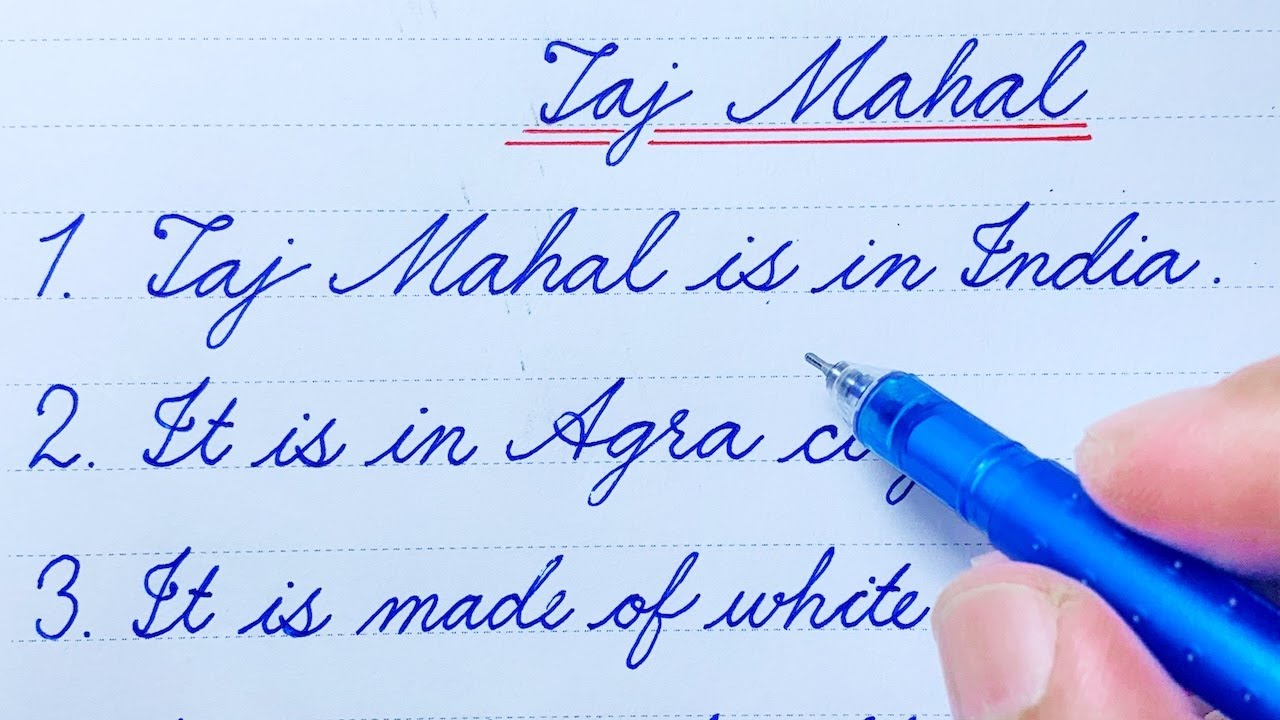 Taj Mahal
1. Taj Mahal is in India.
2. It is in Agra
3. It is made of white